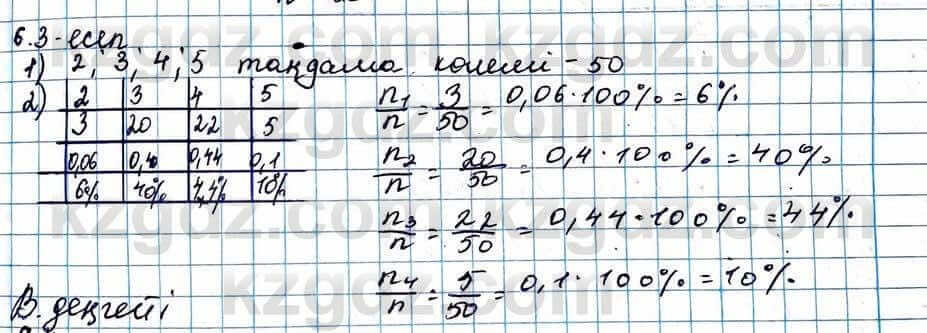 6.3-есеп
1) 2; 3; 4; 5 таңдама көлемі - 50
2) 2 3 4 5
3 20 22 5
0,06 0,40 0,44 0,1
6% 40% 44% 10%
n1/n = 3/50 = 0,06·100% = 6%
n2/n = 20/50 = 0,4·100% = 40%
n3/n = 22/50 = 0,44·100% = 44%
n4/n = 5/50 = 0,1·100% = 10%
В. деңгейі